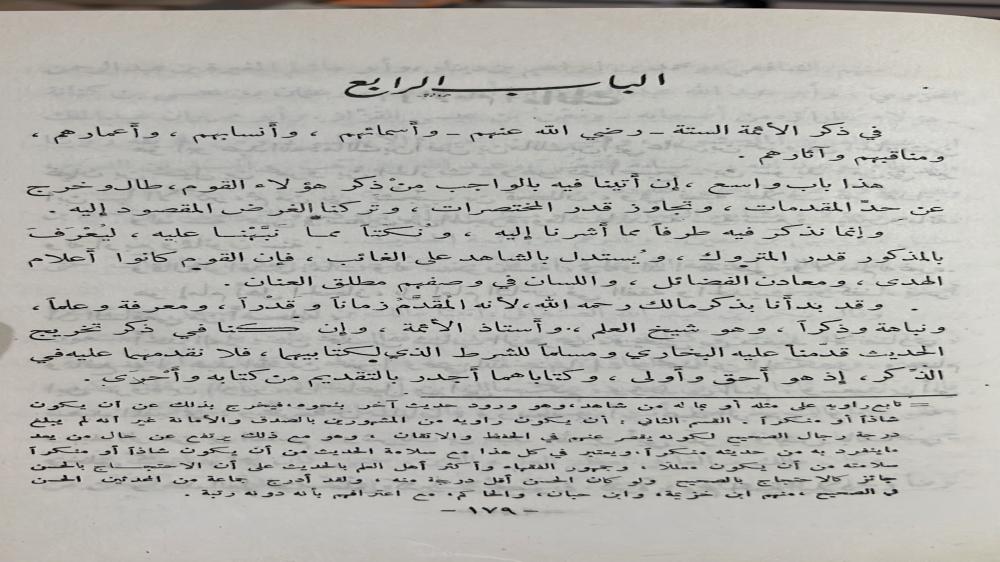 الباب الرابع
في ذكر الأئمة الستة - رضي الله عنهم - وأسمائهم ، وأنسابهم ، وأعمارهم ،
ومناقبهم وآثارهم .
هذا باب واسع ، إن أتينا فيه بالواجب مِنْ ذكر هؤلاء القوم ، طال وخرج
عن حدّ المقدمات ، وتجاوز قدر المختصرات ، وتركنا الغرض المقصود إليه .
وإنما نذكر فيه طرفاً مما أشرنا إليه ، ونُكتاً مما نَبَّهْنا عليه ، ليُعْرَفَ
بالمذكور قدر المتروك ، ويُستدل بالشاهد على الغائب ، فإن القوم كانوا أعلام
الهدى ، ومعادن الفضائل ، واللسان في وصفهم مطلق العنان .
وقد بدأنا بذكر مالك رحمه الله، لأنه المُقَدَّمُ زماناً وقَدْراً ، ومعرفة وعلماً ،
ونباهة وذِكراً ، وهو شيخ العلم ، وأستاذ الأئمة ، وإن كنا في ذكر تخريج
الحديث قدّمنا عليه البخاري ومسلماً للشرط الذي لكتابيهما ، فلا نقدمهما عليه في
الذِّكر ، إذ هو أحق وأولى ، وكتاباهما أجدر بالتقديم من كتابه وأَحْرَى .
= تابع راويه على مثله أو بما له من شاهد، وهو ورود حديث آخر بنحوه، فيخرج بذلك عن أن يكون
شاذاً أو منكراً . القسم الثاني : أن يكون راويه من المشهورين بالصدق والأمانة غير أنه لم يبلغ
درجة رجال الصحيح لكونه يقصر عنهم في الحفظ والاتقان ، وهو مع ذلك يرتفع عن حال من يعد
ما ينفرد به من حديثه منكراً، ويعتبر في كل هذا مع سلامة الحديث من أن يكون شاذاً أو منكراً
سلامته من أن يكون معللاً ، وجمهور الفقهاء وأكثر أهل العلم بالحديث على أن الاحتجاج بالحسن
جائز كالاحتجاج بالصحيح ولو كان الحسن أقل درجة منه ، ولقد أدرج جماعة من المحدثين الحسن
في الصحيح ، منهم ابن خزيمة، وابن حبان، والحاكم، مع اعترافهم بأنه دونه رتبة .
- ١٧٩ -